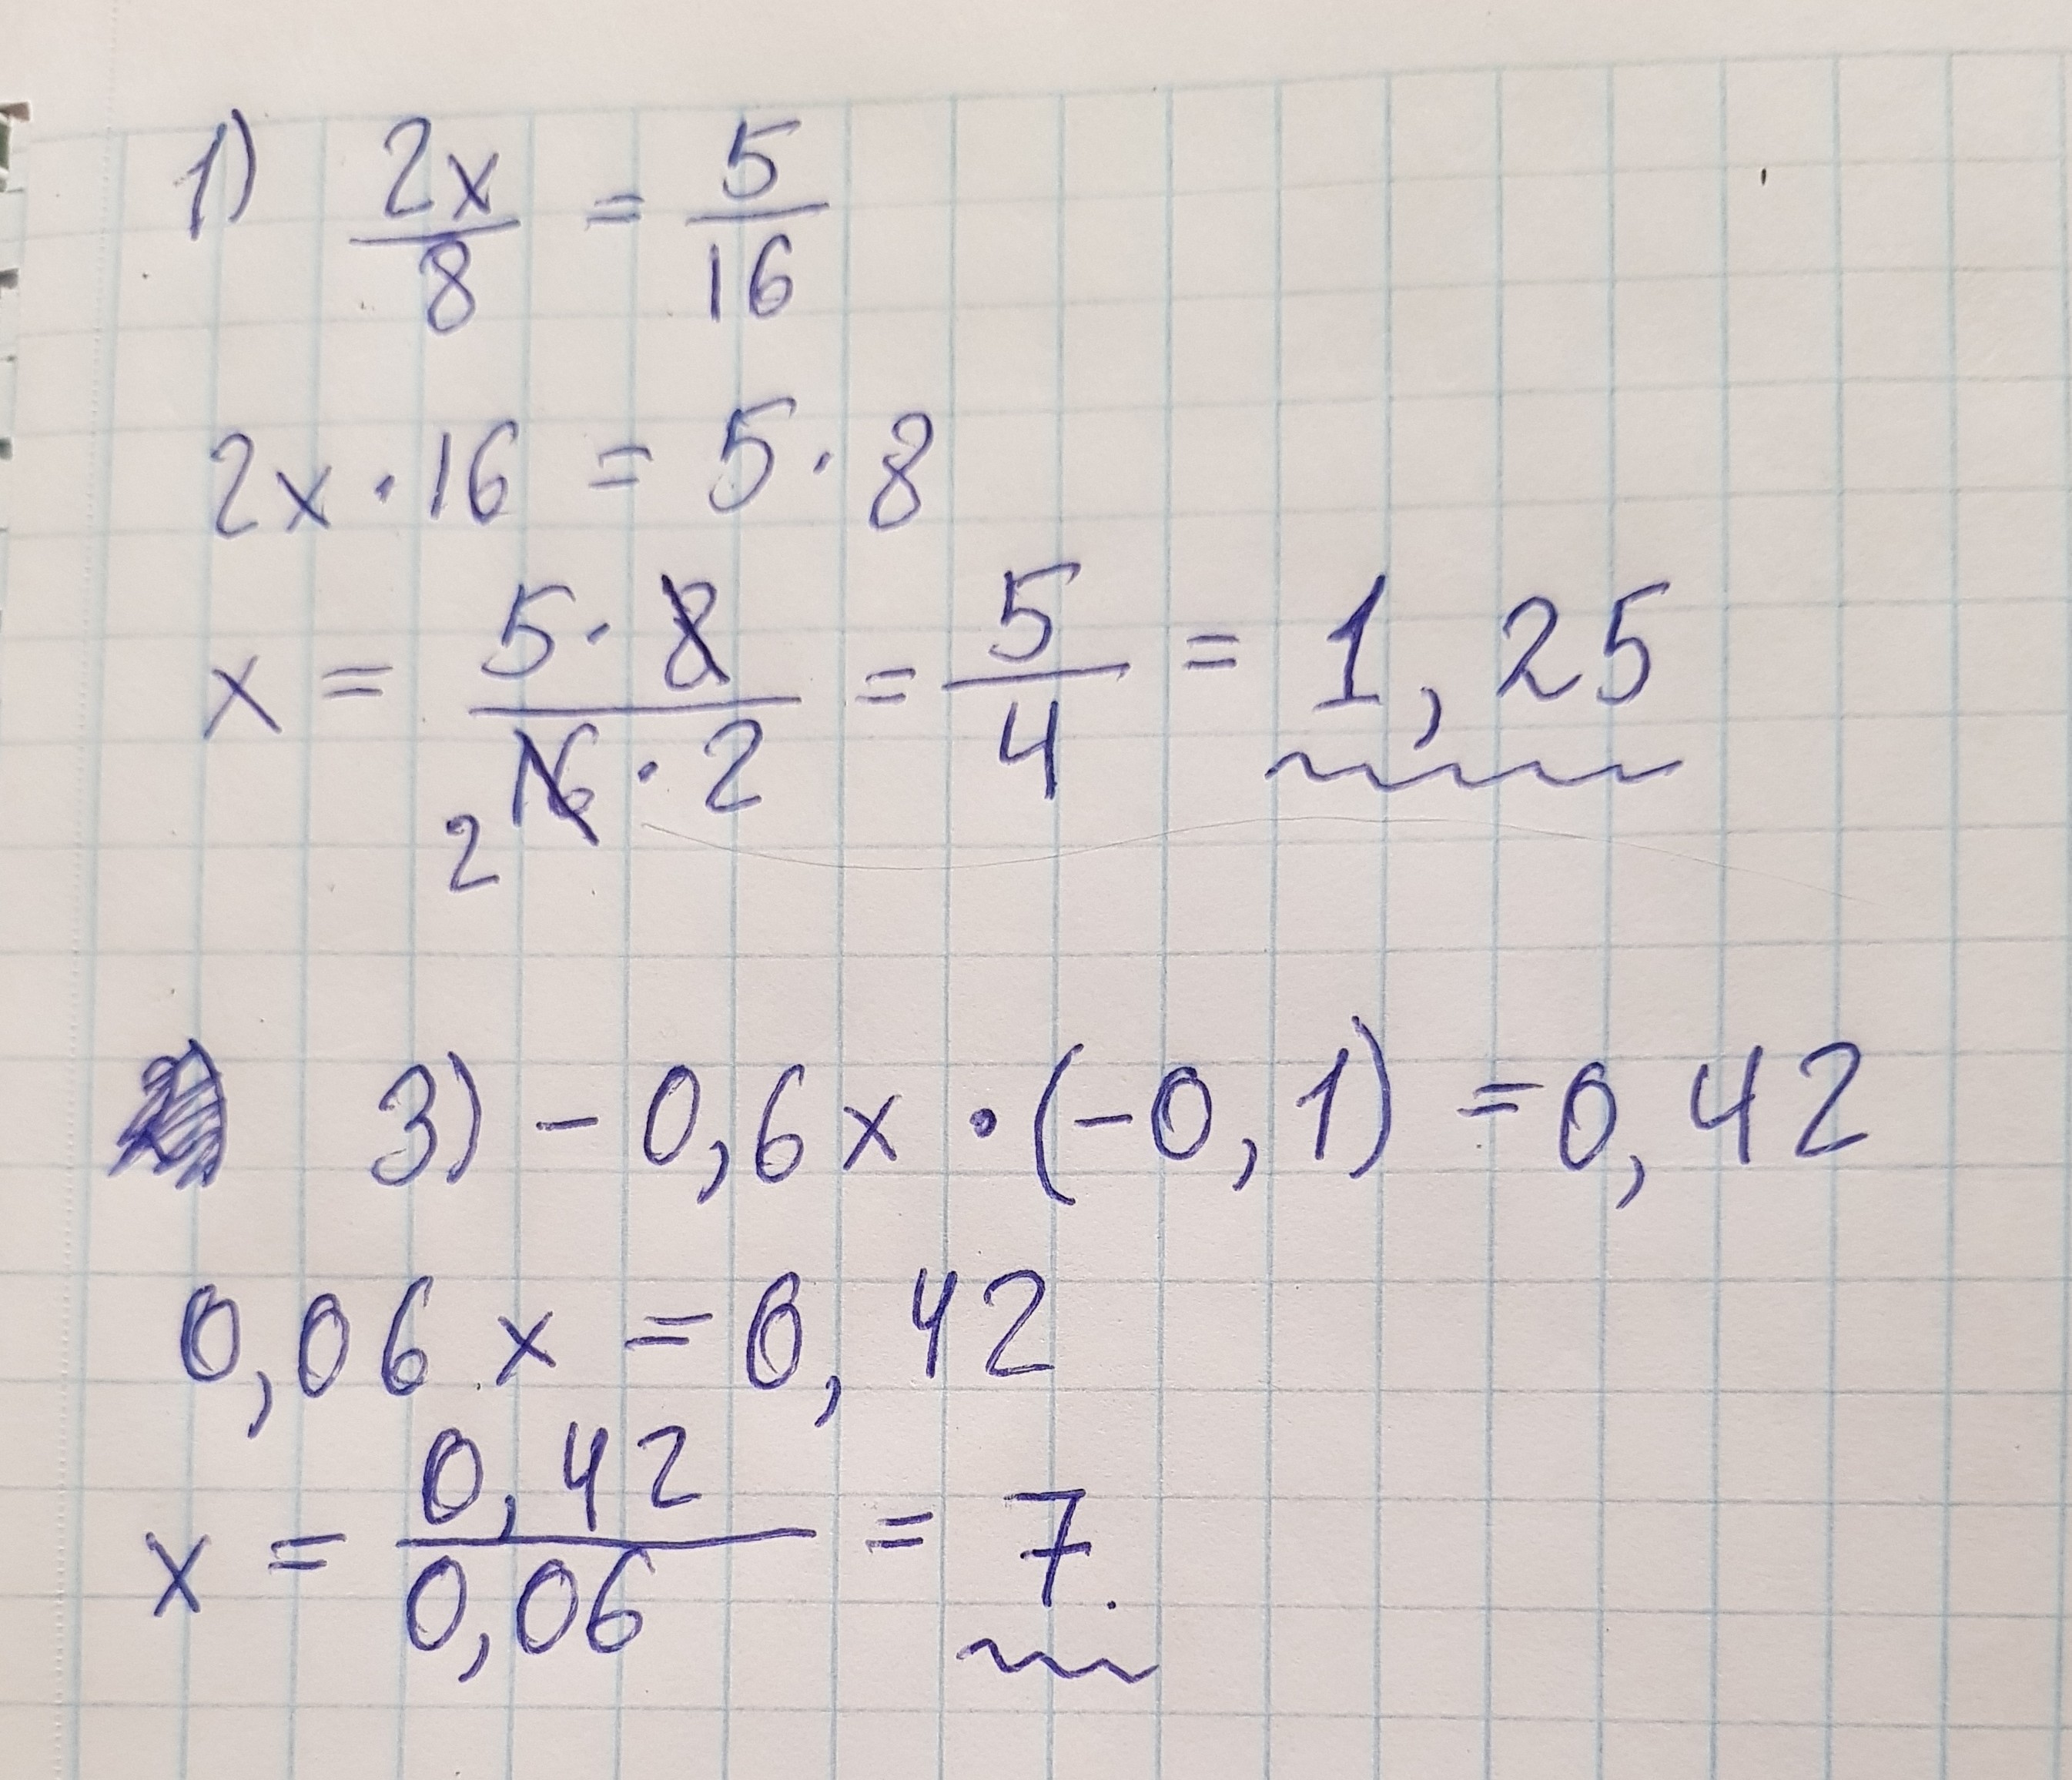 1) 2x/8 = 5/16
2x · 16 = 5 · 8
x = 5 · 8/16 · 2 = 5/4 = 1,25
2
3) - 0,6x · (-0,1) = 0,42
0,06x = 0,42
x = 0,42/0,06 = 7.